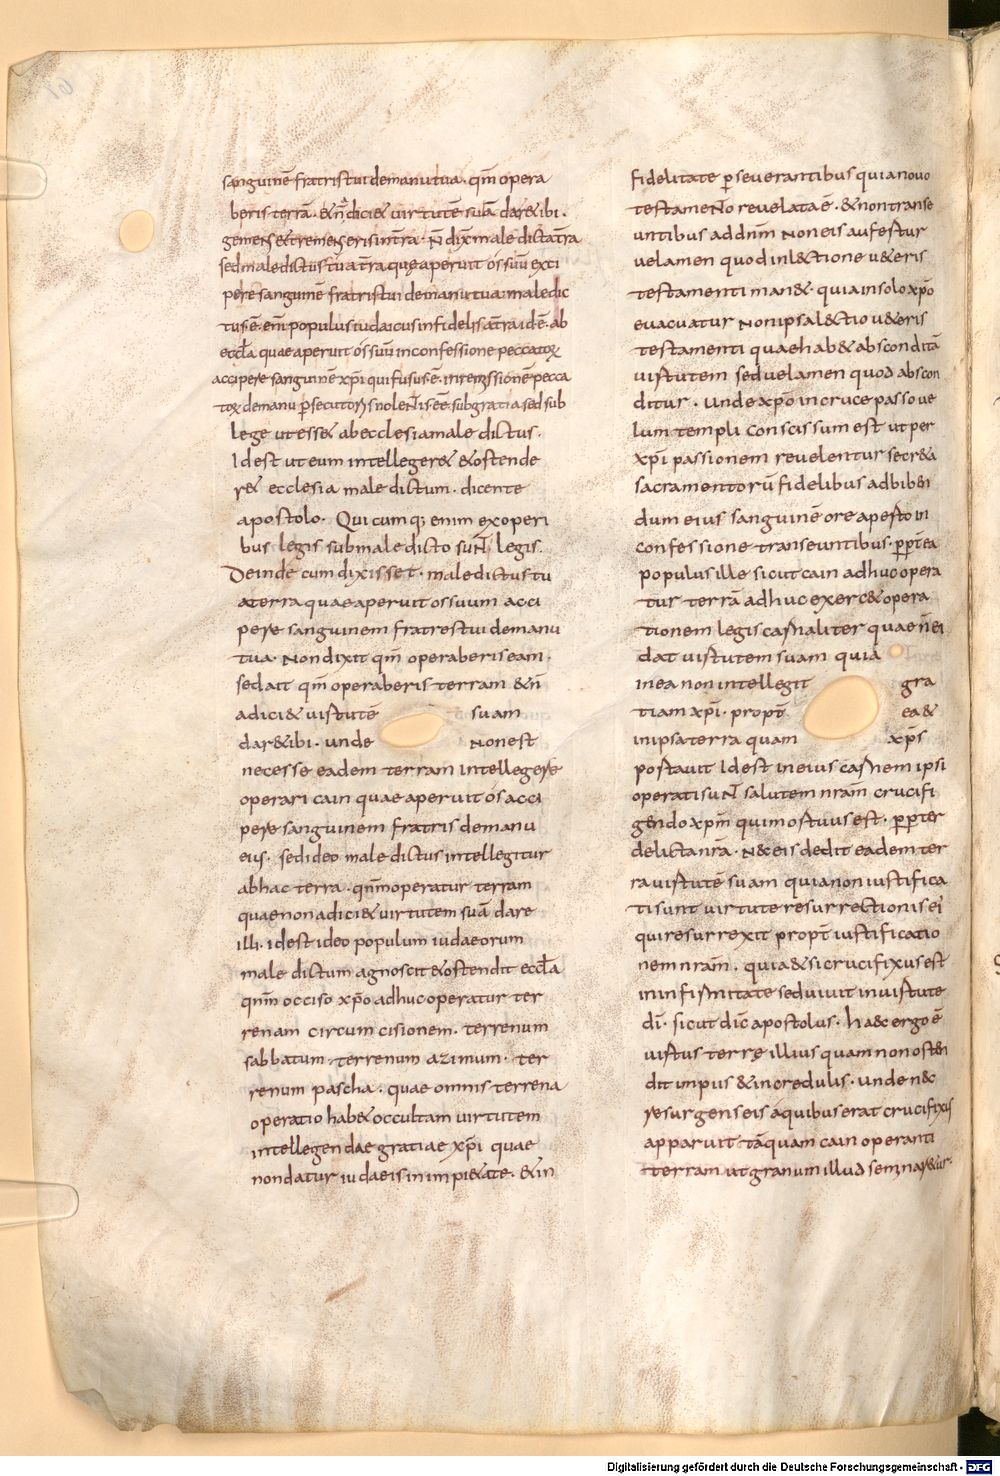 sanguinē fratris tui de manu tua · qm̄ opera
beris terrā · & n̄ adici& uirtutē suā dar& ibi ·
gemens & tremens eris in t̄ra · N̄ dix̄ maledicta t̄ra
sed maledictus tu a t̄ra quę aperuit os suū exci
pere sanguinē fratris tui de manu tua · maledic
tus ē · em̄ populus iudaicus infidelis a t̄ra id ē · ab
eccl̄a quae aperuit os suū in confessione peccatoꝝ
accipere sanguinē xp̄i qui fusus ē · in remissionē pecca
toꝝ de manu p̱secutoris nolentis eē sub gratia sed sub
lege ut ess& ab ecclesia male dictus ·
Id est ut eum intelleger& & ostende
r& ecclesia male dictum · dicente
apostolo · Qui cumq; enim ex operi
bus legis sub male dicto suNT legis.
Deinde cum dixisset · male dictus tu
a terra quae aperuit os suum acci
pere sanguinem fratres tui de manu
tua · Non dixit qm̄ operaberis eam ·
sed ait qm̄ operaberis terram & n̄
adici& uirtutē suam
dar& ibi · unde non est
necesse eadem terram intellegere
operari cain quae aperuit os acci
pere sanguinem fratris de manu
eius · sed ideo male dictus intellegitur
ab hac terra · qnm̄ operatur terram
quae non adici& uirtutem suā dare
illi · id est ideo populum iudaeorum
male dictum agnoscit & ostendit eccl̄a
qnm̄ occiso xp̄o adhuc operatur ter
renam circum cisionem · terrenum
sabbatum · terrenum azimum · ter
renum pascha · quae omnis terrena
operatio hab& occultam uirtutem
intellegendae gratiae xp̄i quae
non datur iudaeis in impi&ate · & in
fidelitate p̱seuerantibus quia nouo
testameNTo reuelata ē · & non transe
untibus ad dn̄m non eis aufertur
uelamen quod in l&ctione u&eris
testamenti man& · quia in solo xp̄o
euacuatur non ipsa l&ctio u&eris
testamenti quae hab& absconditā
uirtutem sed uelamen quod abscon
ditur · Unde xp̄o in cruce passo ue
lum templi conscissum est ut per
xp̄i passionem reuelentur secr&a
sacramentorū fidelibus ad biben
dum eius sanguinē ore aperto in
confessione transeuntibus · p̱p̱t̄ ea
populus ille sicut cain adhuc opera
tur terrā adhuc exerc& opera
tionem legis carnaliter quae n̄ ei
dat uirtutem suam quia
in ea non intellegit gra
tiam xp̄i · propt̄ ea &
in ipsa terra quam xp̄s
portauit Id est in eius carnem ipsi
operati suNT salutem nr̄am crucifi
gendo xp̄m qui mortuus est · p̱p̱ter
delicta nr̄a · Nec eis dedit eadem ter
ra uirtutē suam quia non iustifica
ti sunt uirtute resurrectionis ei'
qui resurrexit propt̄ iustificatio
nem nr̄am · quia & si crucifixus est
in infirmitate sed uiuit in uirtute
dī · sicut dic̄ apostolus · haec ergo ē
uirtus terrę illius quam non osten
dit impiis & incredulis · unde nec
resurgens eis a quibus erat crucifixus
apparuit tāquam cain operanti
terram ut granum illud seminar&ur ·
Digitalisierung gefördert durch die Deutsche Forschungsgemeinschaft - DFG